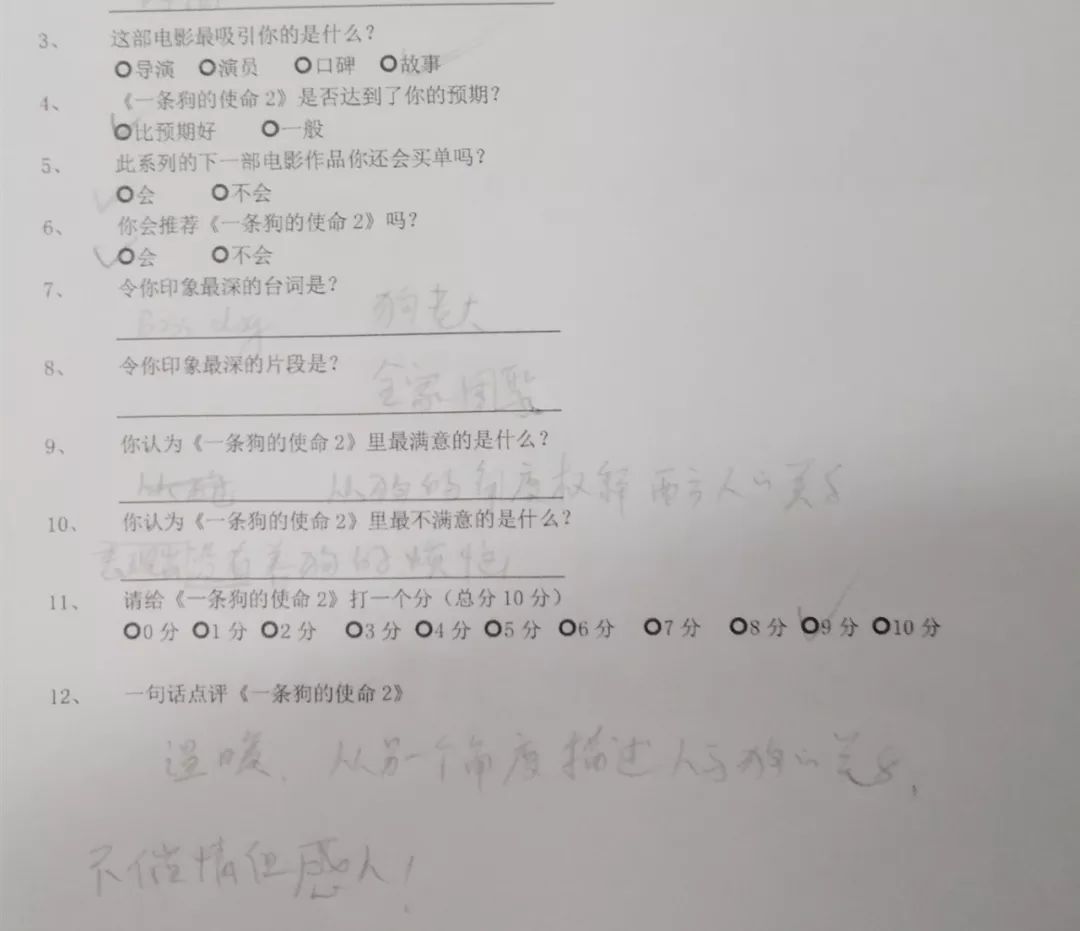 3、 这部电影最吸引你的是什么？
导演 演员 口碑 故事
4、 《一条狗的使命2》是否达到了你的预期？
比预期好 一般
5、 此系列的下一部电影作品你还会买单吗？
会 不会
6、 你会推荐《一条狗的使命2》吗？
会 不会
7、 令你印象最深的台词是？
Boss dog 狗老大
8、 令你印象最深的片段是？
全家团聚
9、 你认为《一条狗的使命2》里最满意的是什么？
从狗的角度权释 人的关系
10、 你认为《一条狗的使命2》里最不满意的是什么？
没有养狗的烦恼
11、 请给《一条狗的使命2》打一个分（总分10分）
0分 1分 2分 3分 4分 5分 6分 7分 8分 9分 10分
12、 一句话点评《一条狗的使命2》
温暖，从另一个角度描述人与狗的关系，
不催情但感人！